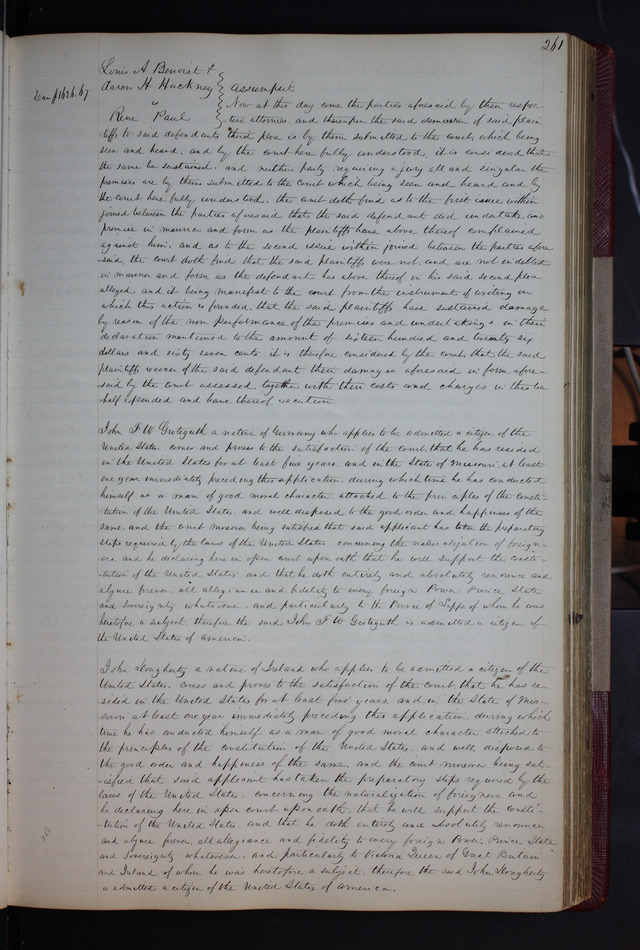 261
Louis A Benoist &
Aaron H Hackney
Dam $1626.67
vs
Assumpsit
Rene Paul
Now at this day come the parties aforesaid by their respec-
tive attorneys and thereupon the said demurrer of said plain
tiffs to said defendants third plea is by them submitted to the court which being
seen and heard, and by the court here fully understood, it is considered that
the same be sustained. and neither party requiring a jury all and singular the
premises are by them submitted to the court which being seen and heard and by
the court here fully understood. the court doth find as to the first issue within
joined between the parties aforesaid that the said defendant did undertake and
promise in manner and form as the plaintiffs have above thereof complained
against him. and as to the second issue within joined between the parties afore
said, the court doth find that the said plaintiffs were not and are not indebted
in manner and form as the defendant has above thereof in his said second plea
alleged. and it being manifest to the court from the instrument of writing on
which this action is founded, that the said plaintiffs have sustained damage
by reason of the non performance of the promises and undertakings in their
declaration mentioned to the amount of sixteen hundred and twenty six
dollars and sixty seven cents it is therefore considered by the court, that the said
plaintiffs recover of the said defendant their damages aforesaid in form afore-
said by the court assessed together with their costs and charges in this be
half expended and have thereof execution
John F W Groteguth a native of Germany who applies to be admitted a citizen of the
United States. comes and proves to the satisfaction of the court that he has resided
in the United States for at least five years, and in the State of Missouri, at least
one year immediately preceding this application. during which time he has conducted
himself as a man of good moral character, attached to the principles of the consti-
tution of the United States, and well disposed to the good order and happiness of the
same. and the court moreover being satisfied that said applicant has taken the preparatory
steps required by the laws of the United States. concerning the naturalization of foreign-
ers. and he declaring here in open court upon oath that he will support the consti-
-tution of the United States and that he doth entirely and absolutely renounce and
abjure forever all allegiance and fidelity to every foreign Power, Prince State
and Sovereignty whatsoever. and particularly to the Prince of Lippe of whom he was
heretofore a subject. therefore the said John F W Groteguth is admitted a citizen of
the United States of America.
John Dougherty a native of Ireland who applies to be admitted a citizen of the
United States. comes and proves to the satisfaction of the court, that he has re-
sided in the United States for at least five years, and in the State of Mis-
souri at least one year immediately preceding this application. during which
time he has conducted himself as a man of good moral character attached to
the principles of the constitution of the United States. and well disposed to
the good order and happiness of the same. and the court moreover being sat-
-isfied that said applicant has taken the preparatory steps required by the
laws of the United States. concerning the naturalization of foreigners and
he declaring here in open court upon oath, that he will support the consti-
tution of the United States. and that he doth entirely and absolutely renounce
and abjure forever all allegiance and fidelity to every foreign Power, Prince State
and Sovereignty whatsoever. and particularly to Victoria Queen of Great Britain
and Ireland of whom he was heretofore a subject. therefore the said John Dougherty
is admitted a citizen of the United States of America.